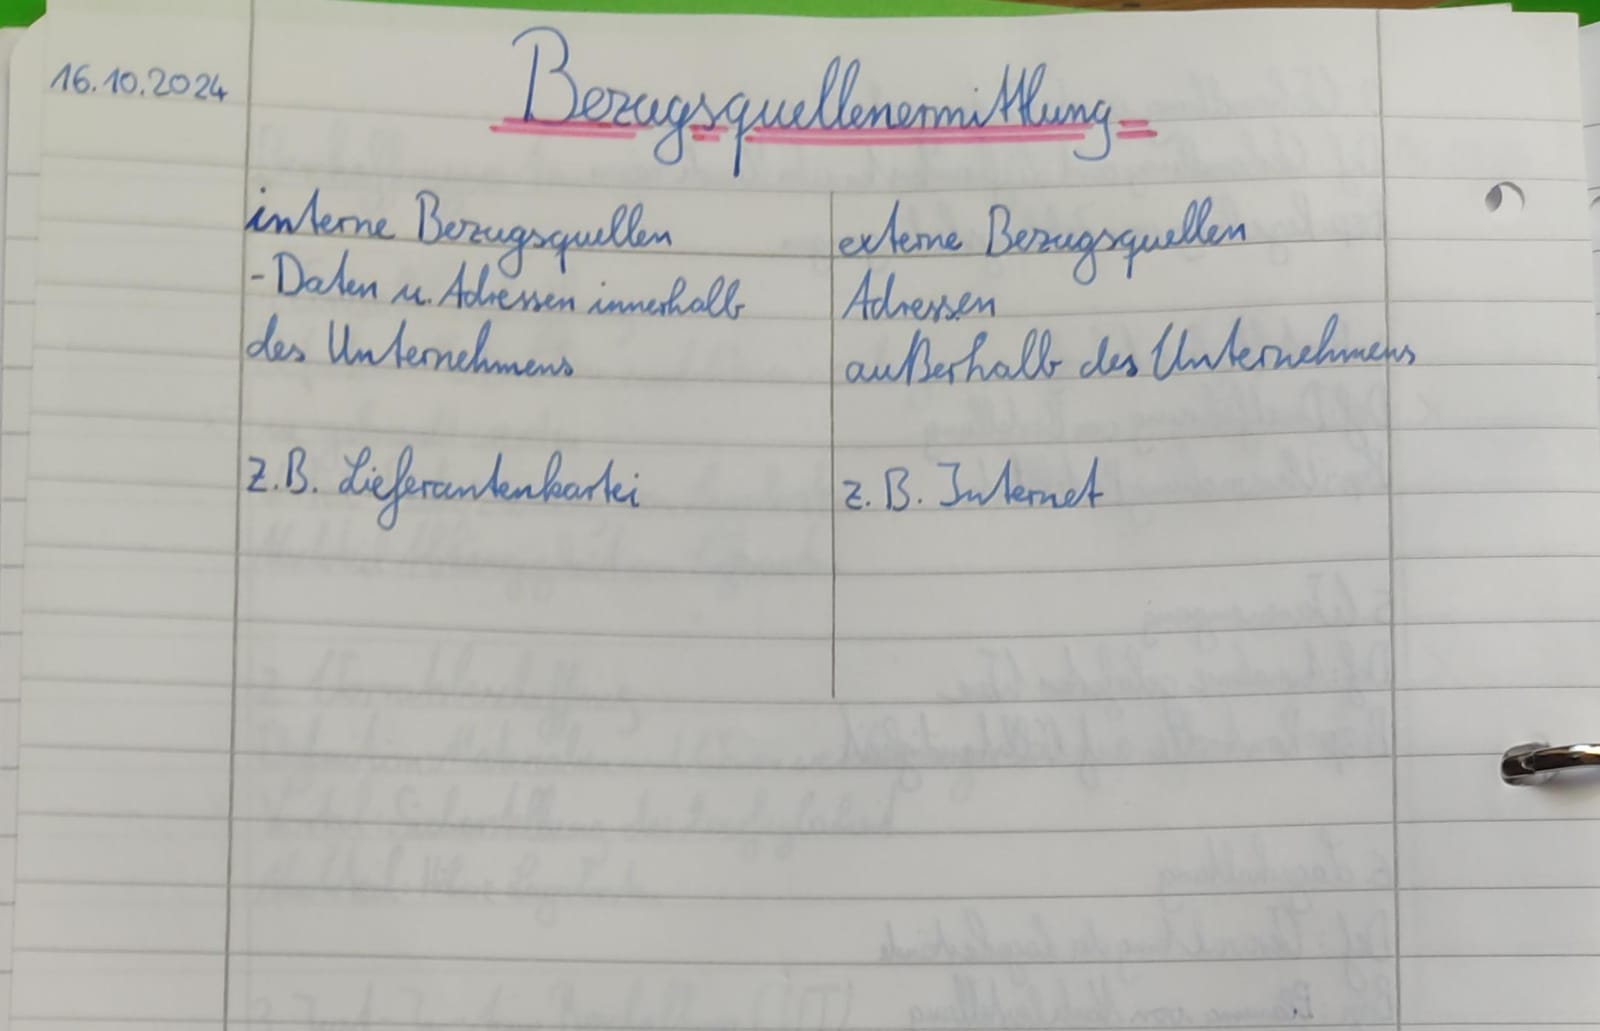 16.10.2024
Bezugsquellenermittlung
interne Bezugsquellen
- Daten u. Adressen innerhalb
des Unternehmens
z.B. Lieferantenkartei
externe Bezugsquellen
Adressen
außerhalb des Unternehmens
z. B. Internet